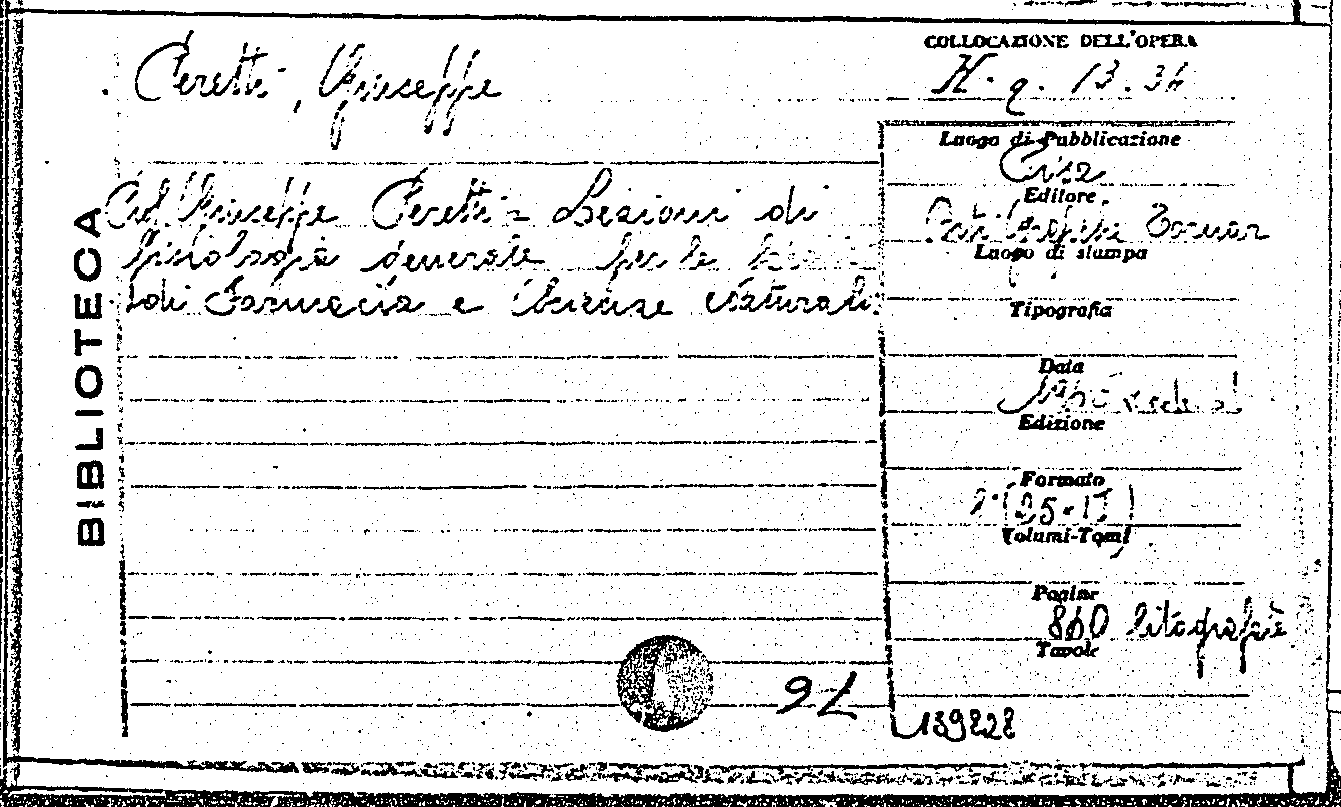 COLLOCAZIONE DELL'OPERA
Peretti, Giuseppe
H. q. 13. 34
BIBLIOTECA
Giuseppe Peretti - Lezioni di
fisiologia generale per le
di Farmacia e Scienze Naturali
Luogo di Pubblicazione
Pisa
Editore
Luogo di stampa
Tipografia
Data
Edizione
Formato
(25-17)
Volumi-Tomi
Pagine
860 litografiè
Tavole
76
139828